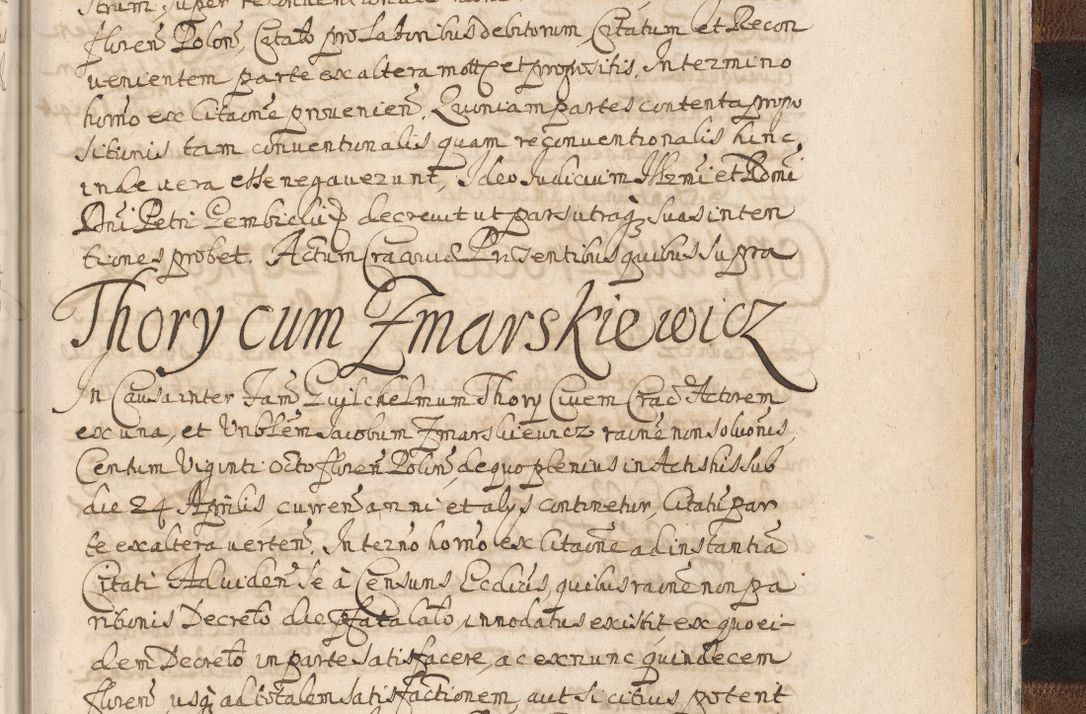 floren Polon, Citato pro laboribus debitorum, Citatum et Recon
venientem parte ex altera mott et propositis, In termino
horno ex Citaone provenien. Quoniam partes contenta propo
sitionis tam conventionalis quam reconventionalis hinc,
inde vera esse negaverunt, Ideo Judicium Illrmi et Rdmi
Dni Petri Gembicki Ep decrevit ut pars utraq suas inten
tiones probet. Actum Cracoviæ Præsentibus quibus supra
Thory cum Zmarskiewicz
In Causa inter Fam Guilchelmum Thory Civem Crac Actorem
ex una, et Unoblem Jacobum Zmarskiewicz raone non solvonis,
Centum Viginti octo floren Polon, de quo plenius in Actis his sub
die 24 Aprilis, curren anni et alys continetur, Citatū par
te ex altera verten. In terno horno ex Citaone ad instantia
Citati Ad viden se à Censuris Ecclicis, quibus raone non pa
ritionis Decreto die lato, innodatus existit ex quo ei-
dem Decreto in parte satisfacere, ac ex nunc quindecem
floren usq ad totalem satisfactionem, aut si citius potent